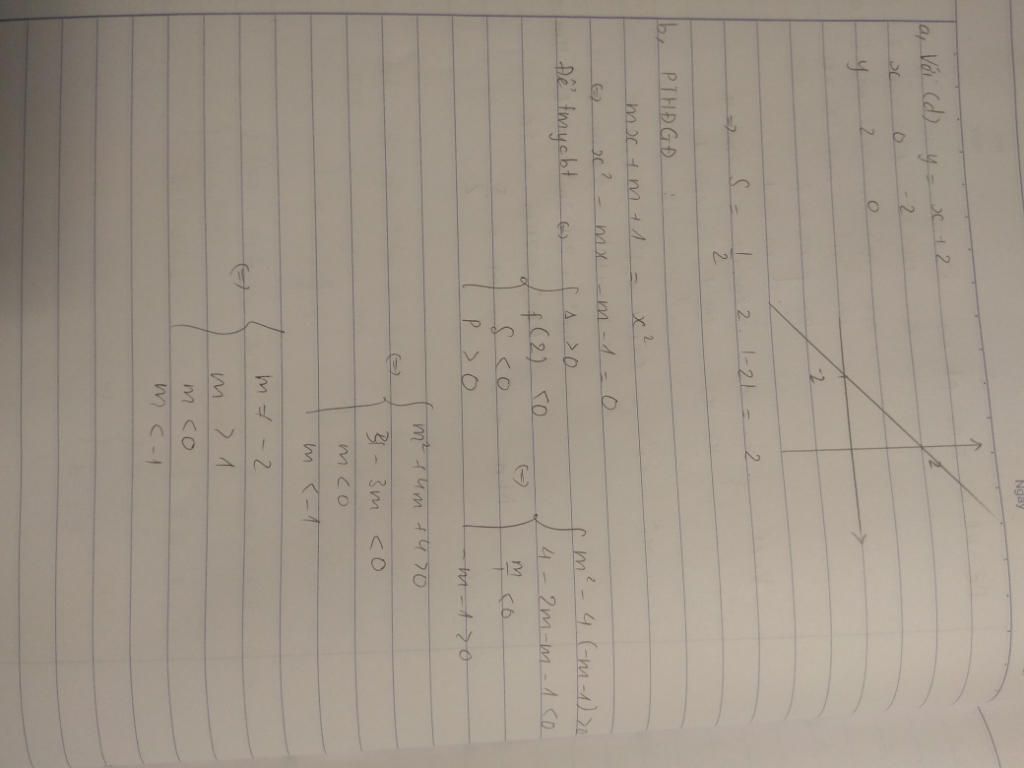 Ngày
a, Với (d) y = x + 2
x 0 -2
y 2 0
2
-2
⇒ S = 1/2 . 2 . |-2| = 2
b, PTHĐGĐ :
mx + m + 1 = x²
⇔ x² - mx - m - 1 = 0
Để tmycbt ⇔ { Δ > 0 ⇔ { m² - 4(-m-1) > 0
f(2) < 0 4 - 2m - m - 1 < 0
S < 0 m/1 < 0
P > 0 -m - 1 > 0
⇔ { m² + 4m + 4 > 0
3 - 3m < 0
m < 0
m < -1
⇔ { m ≠ -2
m > 1
m < 0
m < -1